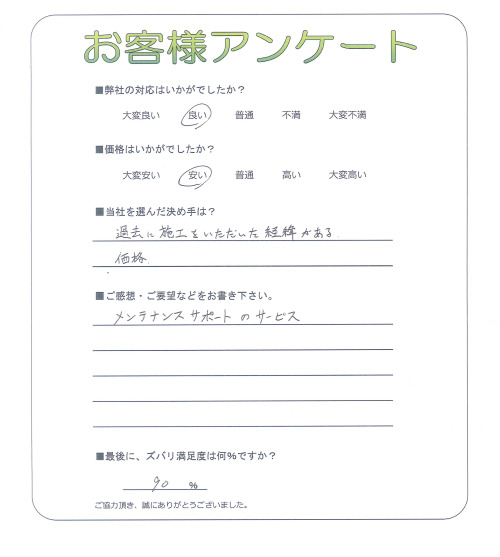 お客様アンケート
■弊社の対応はいかがでしたか？
大変良い 良い 普通 不満 大変不満
■価格はいかがでしたか？
大変安い 安い 普通 高い 大変高い
■当社を選んだ決め手は？
過去に施工をいただいた経緯がある.
価格.
■ご感想・ご要望などをお書き下さい。
メンテナンスサポートのサービス
■最後に、ズバリ満足度は何％ですか？
90 ％
ご協力頂き、誠にありがとうございました。